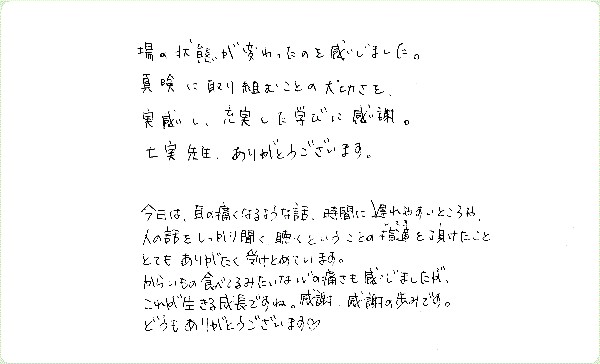 場の状態が変わったのを感じました。
真険に取り組むことの大切さを、
実感し、充実した学びに感謝。
七実先生、ありがとうございます。
今日は、耳の痛くなるような話、時間に遅れやすいところや、
人の話をしっかり聞く聴くということの指導を頂けたこと
とてもありがたく受けとめています。
からいもの食べてるみたいな心の痛さも感じましたが、
これが生きる成長ですね。感謝、感謝の歩みです。
どうもありがとうございます♡